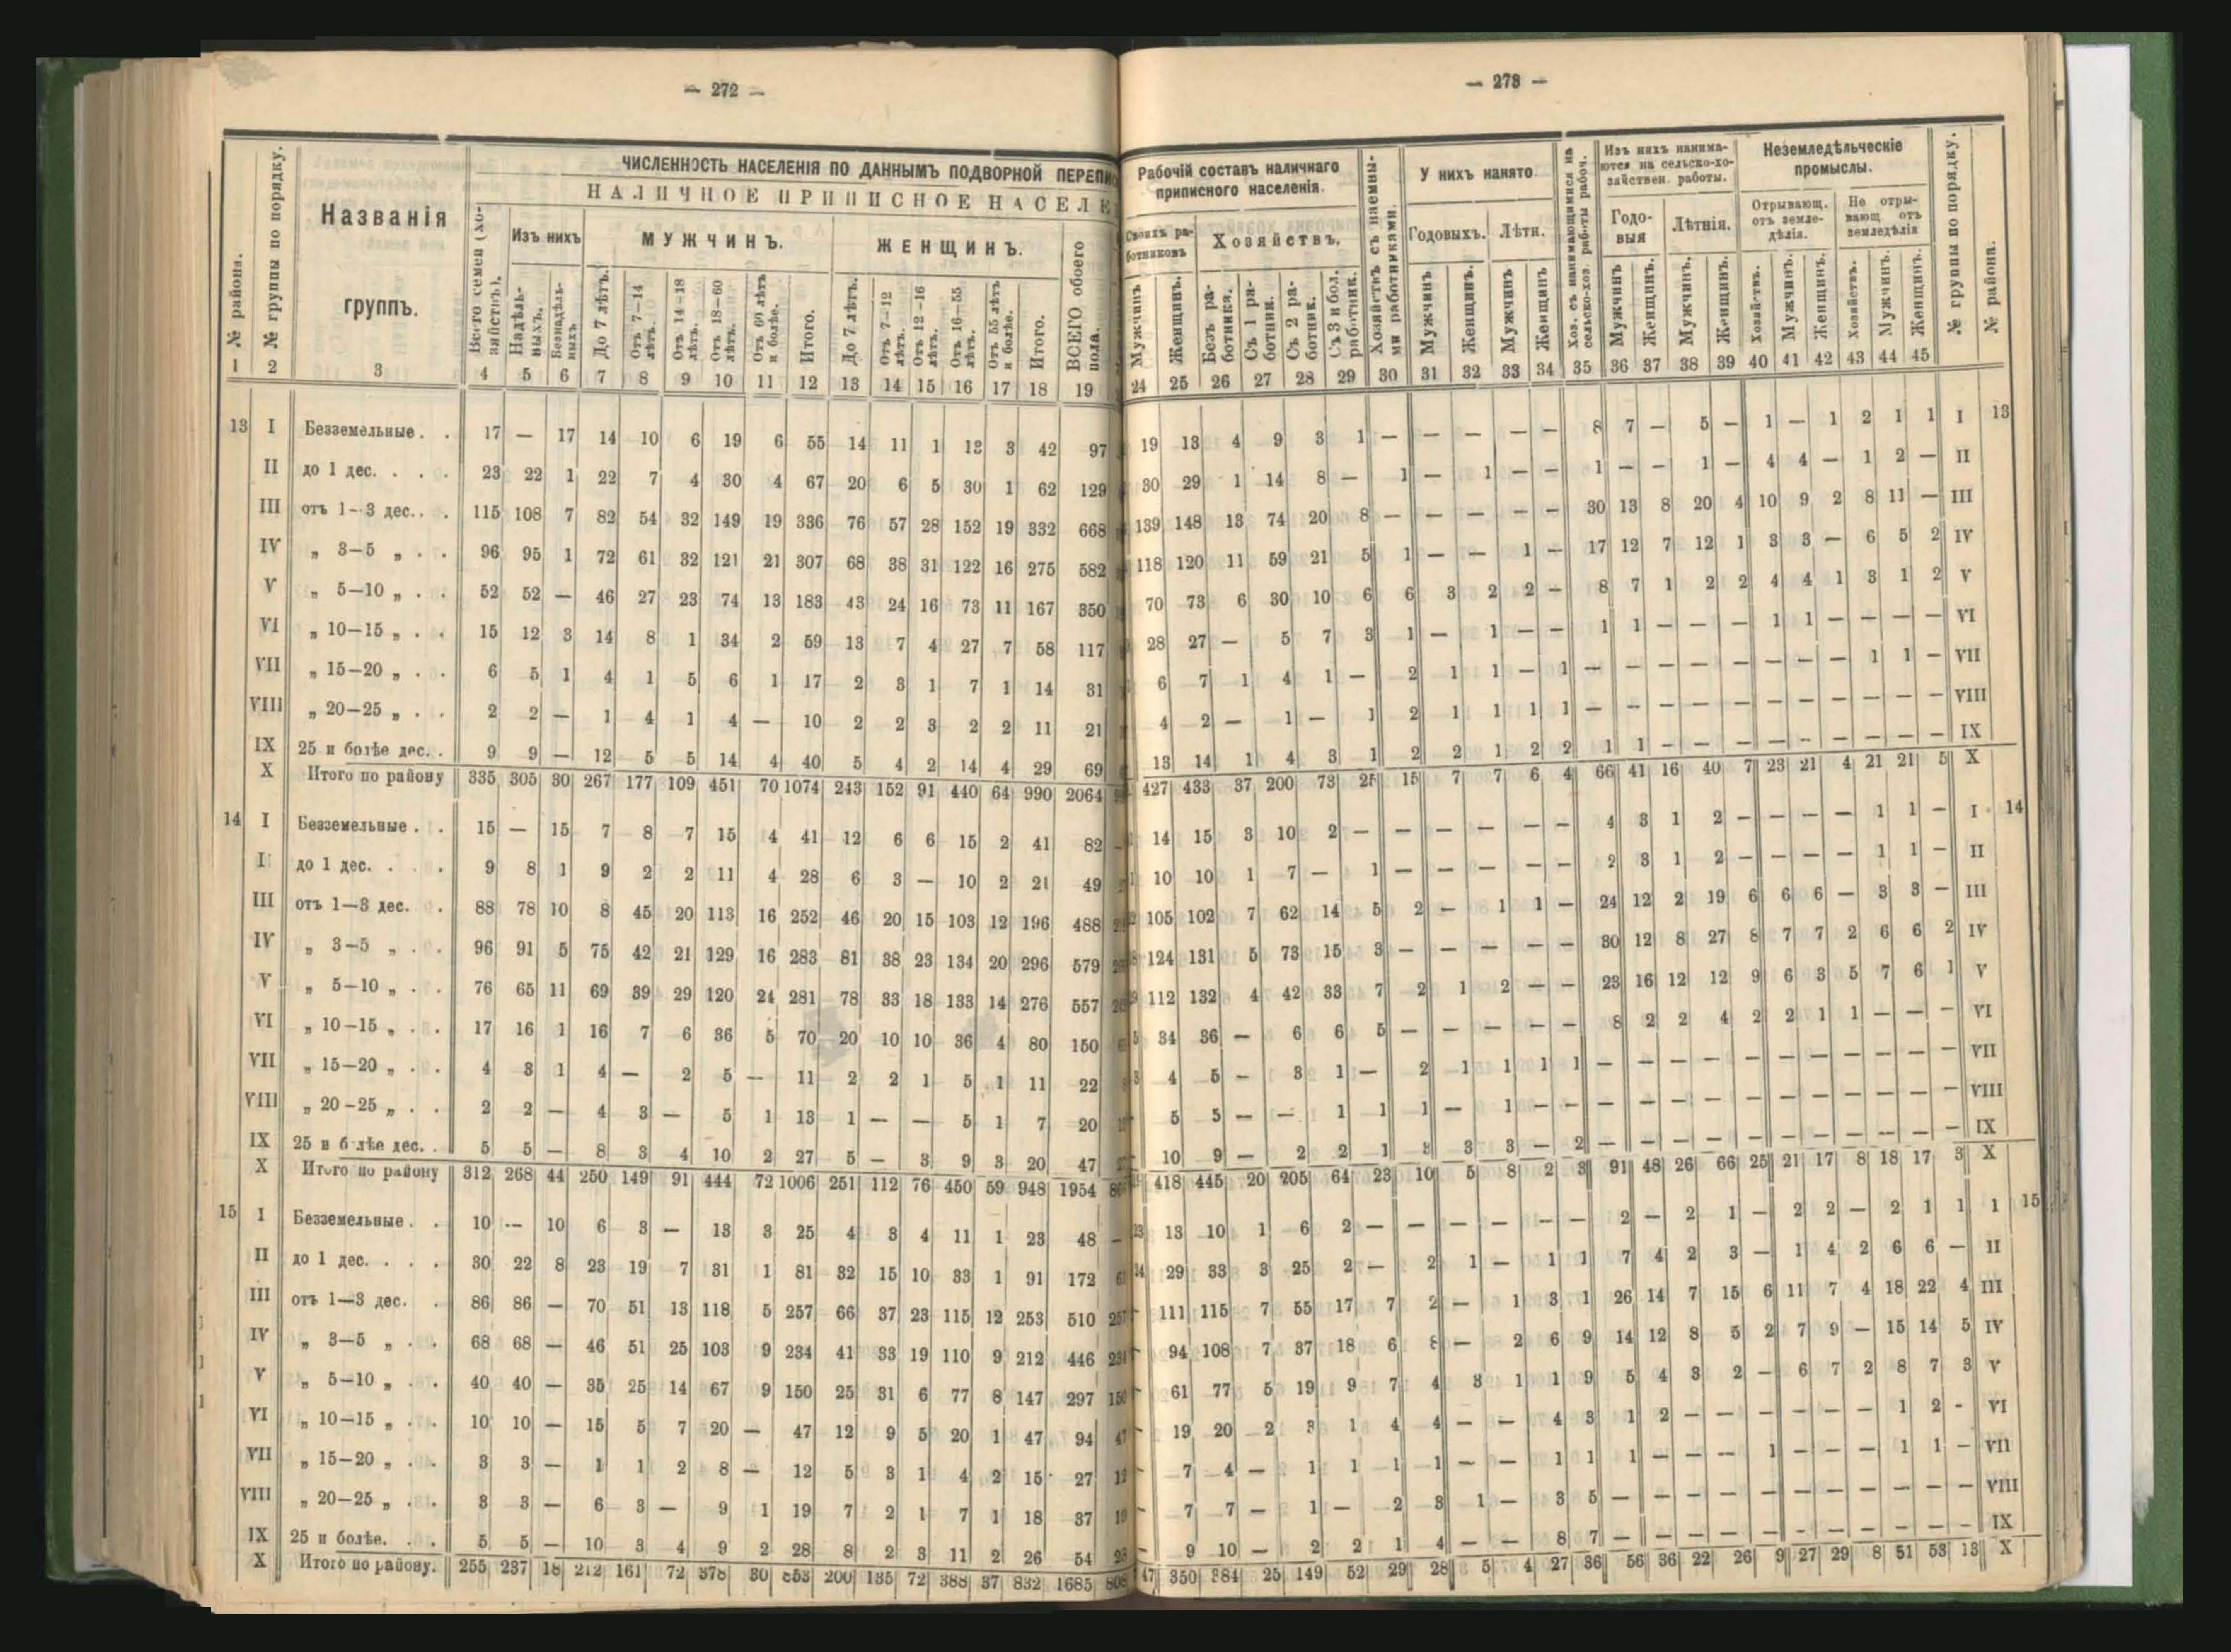 — 272 —
ЧИСЛЕННОСТЬ НАСЕЛЕНІЯ ПО ДАННЫМЪ ПОДВОРНОЙ
НАЛИЧНОЕ ПРИПИСНОЕ
№ района.
№ группы по порядку.
Названія группъ.
Всего семей (хозяйствъ).
Изъ нихъ
Надѣльныхъ.
Безнадѣльныхъ
МУЖЧИНЪ.
До 7 лѣтъ.
Отъ 7—14 лѣтъ.
Отъ 14—18 лѣтъ.
Отъ 18—60 лѣтъ.
Отъ 60 лѣтъ и болѣе.
Итого.
ЖЕНЩИНЪ.
До 7 лѣтъ.
Отъ 7—12 лѣтъ.
Отъ 12—16 лѣтъ.
Отъ 16—55 лѣтъ.
Отъ 55 лѣтъ и болѣе.
Итого.
ВСЕГО обоего пола.
1 2 3 4 5 6 7 8 9 10 11 12 13 14 15 16 17 18 19
13 I Безземельные. . 17 — 17 14 10 6 19 6 55 14 11 1 13 3 42 97
II до 1 дес. . . . 23 22 1 22 7 4 30 4 67 20 6 5 30 1 62 129
III отъ 1—3 дес. . . 115 108 7 82 54 32 149 19 336 76 57 28 152 19 332 668
IV „ 3—5 „ . . 96 95 1 72 61 32 121 21 307 68 38 31 122 16 275 582
V „ 5—10 „ . . 52 52 — 46 27 23 74 13 183 43 24 16 73 11 167 350
VI „ 10—15 „ . . 15 12 3 14 8 1 34 2 59 13 7 4 27 7 58 117
VII „ 15—20 „ . . 6 5 1 4 1 5 6 1 17 2 3 1 7 1 14 31
VIII „ 20—25 „ . . 2 2 — 1 4 1 4 — 10 2 2 3 2 2 11 21
IX 25 и болѣе дес. . 9 9 — 12 5 5 14 4 40 5 4 2 14 4 29 69
X Итого по району 335 305 30 267 177 109 451 70 1074 243 152 91 440 64 990 2064
14 I Безземельные . . 15 — 15 7 8 7 15 4 41 12 6 6 15 2 41 82
I до 1 дес. . . . 9 8 1 9 2 2 11 4 28 6 3 — 10 2 21 49
III отъ 1—3 дес. . 88 78 10 8 45 20 113 16 252 46 20 15 103 12 196 488
IV „ 3—5 „ . . 96 91 5 75 42 21 129 16 283 81 38 23 134 20 296 579
V „ 5—10 „ . . 76 65 11 69 39 29 120 24 281 78 33 18 133 14 276 557
VI „ 10—15 „ . . 17 16 1 16 7 6 36 5 70 20 10 10 36 4 80 150
VII „ 15—20 „ . . 4 3 1 4 — 2 5 — 11 2 2 1 5 1 11 22
VIII „ 20—25 „ . . 2 2 — 4 3 — 5 1 13 1 — — 5 1 7 20
IX 25 и б лѣе дес. . 5 5 — 8 3 4 10 2 27 5 — 3 9 3 20 47
X Итого по району 312 268 44 250 149 91 444 72 1006 251 112 76 450 59 948 1954
15 I Безземельные. . 10 — 10 6 3 — 13 3 25 4 3 4 11 1 23 48
II до 1 дес. . . . 30 22 8 23 19 7 31 1 81 32 15 10 33 1 91 172
III отъ 1—3 дес. . 86 86 — 70 51 13 118 5 257 66 37 23 115 12 253 510
IV „ 3—5 „ . . 68 68 — 46 51 25 103 9 234 41 33 19 110 9 212 446
V „ 5—10 „ . . 40 40 — 35 25 14 67 9 150 25 31 6 77 8 147 297
VI „ 10—15 „ . . 10 10 — 15 5 7 20 — 47 12 9 5 20 1 47 94
VII „ 15—20 „ . . 3 3 — 1 1 2 8 — 12 5 3 1 4 2 15 27
VIII „ 20—25 „ . . 3 3 — 6 3 — 9 1 19 7 2 1 7 1 18 37
IX 25 и болѣе. . . 5 5 — 10 3 4 9 2 28 8 2 3 11 2 26 54
X Итого по району. 255 237 18 212 161 72 378 30 853 200 135 72 388 37 832 1685
— 273 —
Рабочій составъ наличнаго приписного населенія.
Своихъ работниковъ
Мужчинъ
Женщинъ.
Хозяйствъ.
Безъ работника.
Съ 1 работник.
Съ 2 работник.
Съ 3 и бол. работник.
Хозяйствъ съ наемными работниками.
У нихъ нанято.
Годовыхъ.
Мужчинъ
Женщинъ.
Лѣтн.
Мужчинъ
Женщинъ
Хоз. съ нанимающимися на сельско-хоз. работы рабоч.
Изъ нихъ нанимаются на сельско-хозяйствен. работы.
Годовыя
Мужчинъ
Женщинъ.
Лѣтнія.
Мужчинъ.
Женщинъ.
Неземледѣльческіе промыслы.
Отрывающ. отъ земледѣлія.
Хозяйствъ.
Мужчинъ.
Женщинъ.
Не отрывающ отъ земледѣлія
Хозяйствъ.
Мужчинъ.
Женщинъ.
№ группы по порядку.
№ района.
24 25 26 27 28 29 30 31 32 33 34 35 36 37 38 39 40 41 42 43 44 45
19 13 4 9 3 1 — — — — — 8 7 — 5 — 1 — 1 2 1 1 I 13
30 29 1 14 8 — 1 — 1 — — 1 — — 1 — 4 4 — 1 2 — II
139 148 13 74 20 8 — — — — — 30 13 8 20 4 10 9 2 8 11 — III
118 120 11 59 21 5 1 — — 1 — 17 12 7 12 1 3 3 — 6 5 2 IV
70 73 6 30 10 6 6 3 2 2 — 8 7 1 2 2 4 4 1 3 1 2 V
28 27 — 5 7 3 1 — 1 — — 1 1 — — — 1 1 — — — — VI
6 7 1 4 1 — 2 1 1 — 1 — — — — — — — — 1 1 — VII
4 2 — 1 — 1 2 1 1 1 1 — — — — — — — — — — — VIII
13 14 1 4 3 1 2 2 1 2 2 1 1 — — — — — — — — — IX
427 433 37 200 73 25 15 7 7 6 4 66 41 16 40 7 23 21 4 21 21 5 X
14 15 3 10 2 — — — — — — 4 3 1 2 — — — — 1 1 — I 14
10 10 1 7 — 1 — — — — — 2 3 1 2 — — — — 1 1 — II
105 102 7 62 14 5 2 — 1 1 — 24 12 2 19 6 6 6 — 3 3 — III
124 131 5 73 15 3 — — — — — 30 12 8 27 8 7 7 2 6 6 2 IV
112 132 4 42 33 7 2 1 2 — — 23 16 12 12 9 6 3 5 7 6 1 V
34 36 — 6 6 5 — — — — — 8 2 2 4 2 2 1 1 — — — VI
4 5 — 3 1 — 2 1 1 1 1 — — — — — — — — — — — VII
5 5 — — 1 1 1 — 1 — — — — — — — — — — — — — VIII
10 9 — 2 2 1 3 3 3 — 2 — — — — — — — — — — — IX
418 445 20 205 64 23 10 5 8 2 3 91 48 26 66 25 21 17 8 18 17 3 X
13 10 1 6 2 — — — — — — 2 — 2 1 — 2 2 — 2 1 1 I 15
29 33 3 25 2 — 2 1 — 1 1 7 4 2 3 — 1 4 2 6 6 — II
111 115 7 55 17 7 2 — 1 3 1 26 14 7 15 6 11 7 4 18 22 4 III
94 108 7 37 18 6 8 — 2 6 9 14 12 8 5 2 7 9 — 15 14 5 IV
61 77 5 19 9 7 4 3 1 1 9 5 4 3 2 — 6 7 2 8 7 3 V
19 20 2 3 1 4 4 — — 4 3 1 2 — — — — — — 1 2 - VI
7 4 — 1 1 1 1 — — 1 1 1 — — — 1 — — — 1 1 — VII
7 7 — 1 — 2 3 1 — 3 5 — — — — — — — — — — — VIII
9 10 — 2 2 1 4 — — 8 7 — — — — — — — — — — — IX
350 384 25 149 52 29 28 5 4 27 36 56 36 22 26 9 27 29 8 51 53 13 X